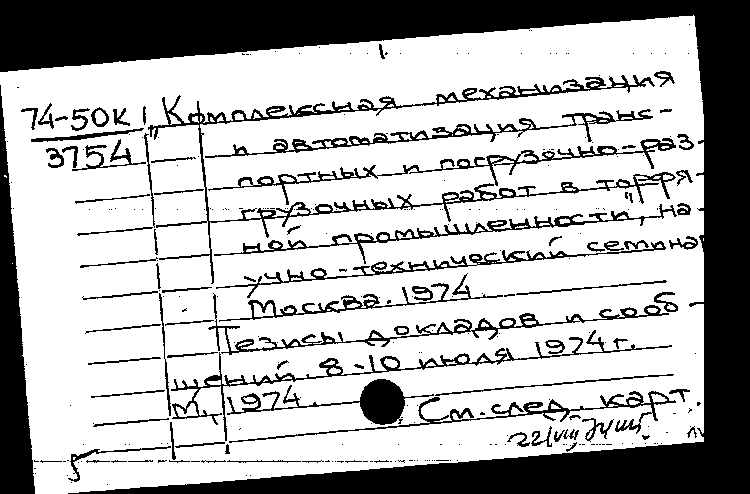 74-50к "Комплексная механизация
3754
и автоматизация транс-
портных и погрузочно-раз-
грузочных работ в торфя-
ной промышленности", на-
учно-технический семинар
Москва. 1974.
Тезисы докладов и сооб-
щений. 8-10 июля 1974 г.
М., 1974.
См. след. карт.
5